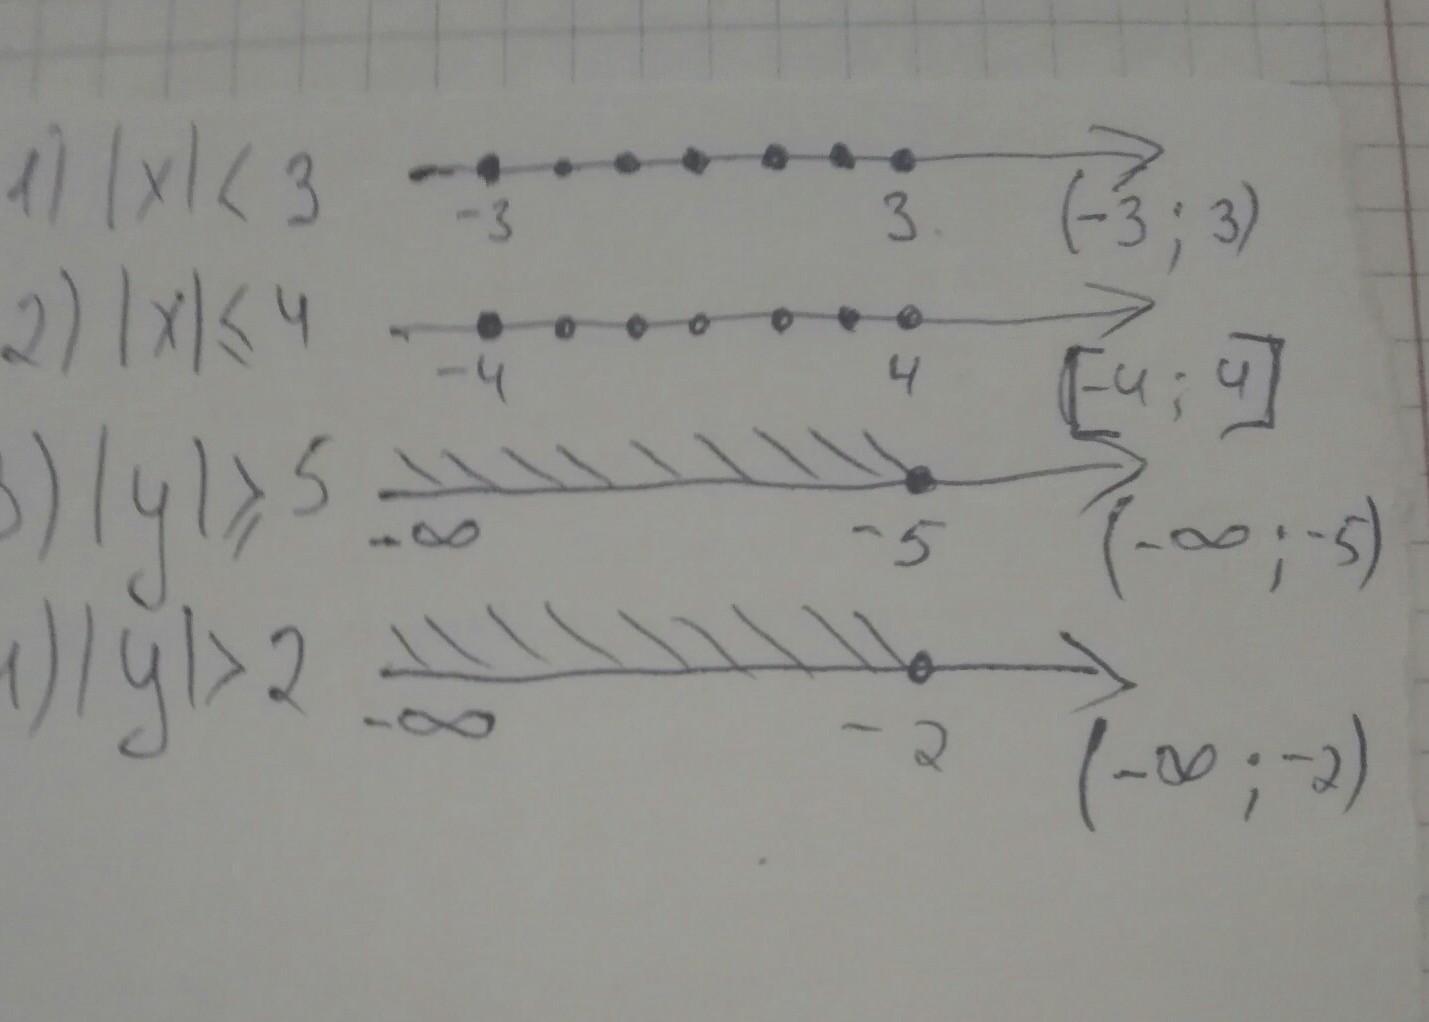 1) |x| < 3 -3 3 (-3 ; 3)
2) |x| ≤ 4 -4 4 [-4 ; 4]
3) |y| ⩾ 5 -∞ -5 (-∞ ; -5)
4) |y| > 2 -∞ -2 (-∞ ; -2)